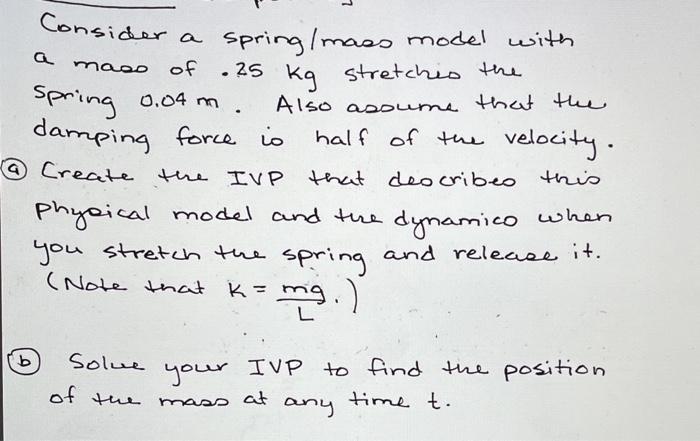 Consider a spring/mass model with
a mass of .25 kg stretches the
spring 0.04 m. Also assume that the
damping force is half of the velocity.
(a) Create the IVP that describes this
physical model and the dynamics when
you stretch the spring and release it.
(Note that K = mg/L.)
(b) Solve your IVP to find the position
of the mass at any time t.